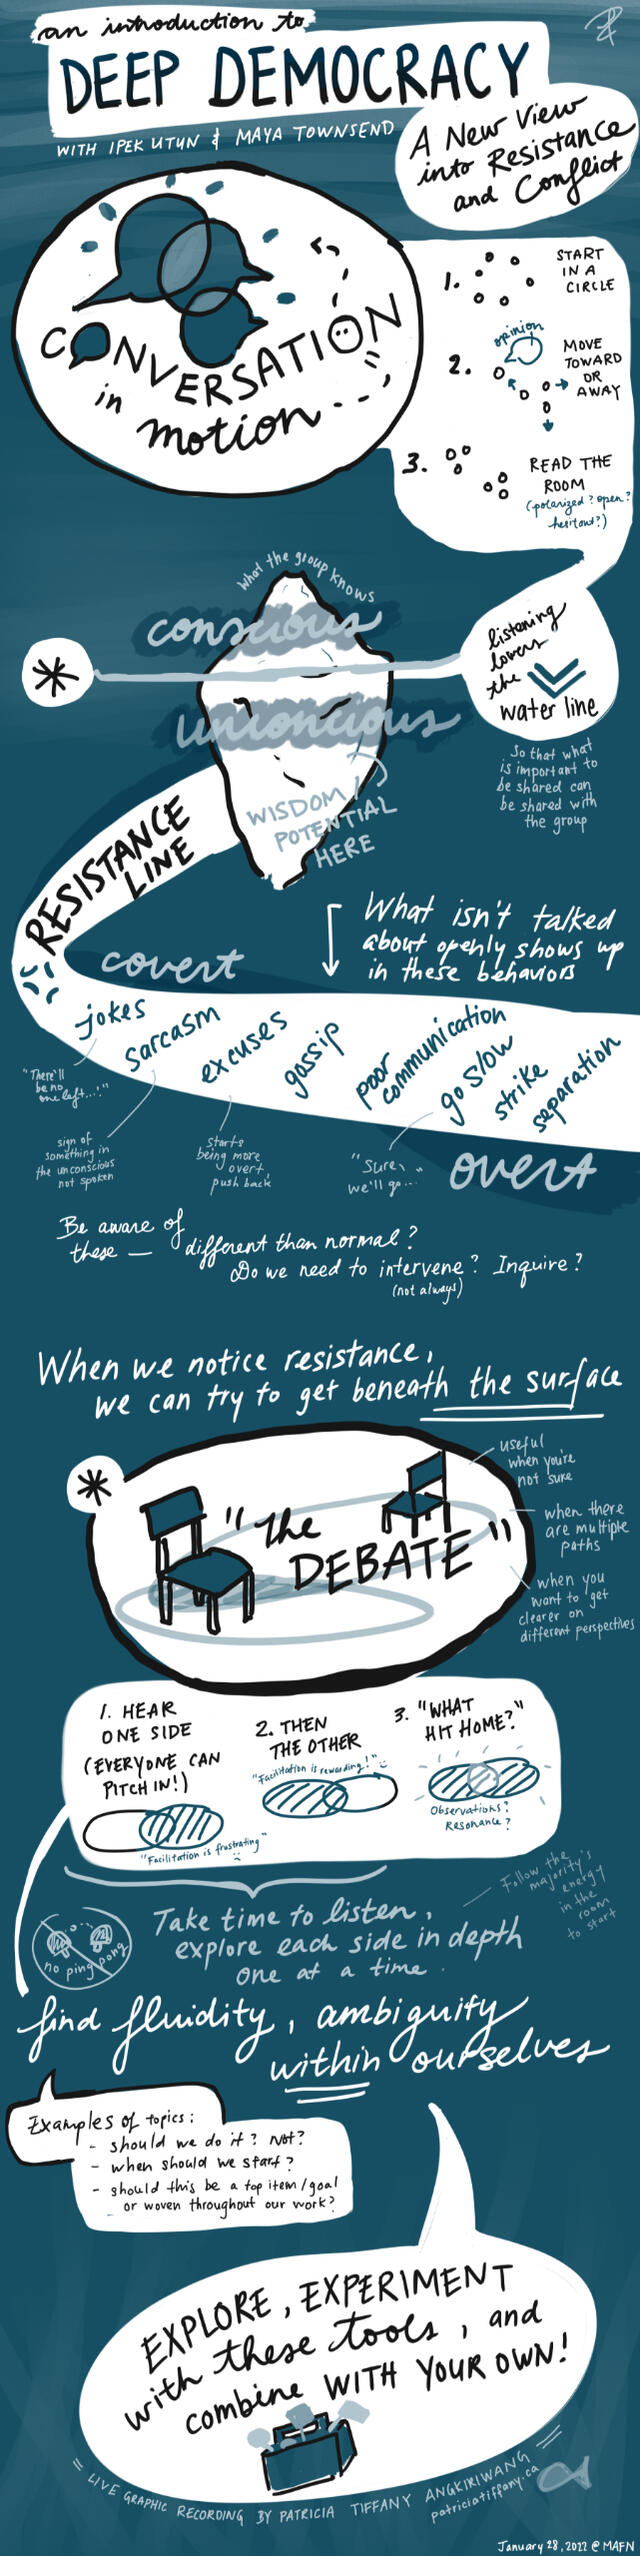 an introduction to
DEEP DEMOCRACY
WITH IPEK UTUN & MAYA TOWNSEND
A New View
into Resistance
and Conflict
CONVERSATION
in
motion
1.
START
IN A
CIRCLE
2.
opinion
MOVE
TOWARD
OR
AWAY
3.
READ THE
ROOM
(polarized? open?
hesitant?)
what the group knows
conscious
unconcious
WISDOM /
POTENTIAL
HERE
listening
lowers
the
water line
So that what
is important to
be shared can
be shared with
the group
RESISTANCE
LINE
What isn't talked
about openly shows up
in these behaviors
covert
jokes
sarcasm
excuses
gossip
poor
communication
go slow
strike
separation
"There'll
be no
one left...!"
sign of
something in
the unconscious
not spoken
starts
being more
overt,
push back
"Sure,
we'll go..."
overt
Be aware of
these — different than normal?
Do we need to intervene? Inquire?
(not always)
When we notice resistance,
we can try to get beneath the surface
"the
DEBATE"
useful
when you're
not sure
when there
are multiple
paths
when you
want to get
clearer on
different perspectives
1. HEAR
ONE SIDE
(EVERYONE CAN
PITCH IN!)
"Facilitation is frustrating"
2. THEN
THE OTHER
"Facilitation is rewarding!"
3. "WHAT
HIT HOME?"
Observations?
Resonance?
Follow the
majority's
energy
in the
room
to start
no ping pong
Take time to listen,
explore each side in depth
one at a time.
find fluidity, ambiguity
within ourselves
Examples of topics:
- should we do it? Not?
- when should we start?
- should this be a top item/goal
or woven throughout our work?
EXPLORE, EXPERIMENT
with these tools, and
combine WITH YOUR OWN!
= LIVE GRAPHIC RECORDING BY PATRICIA TIFFANY ANGKIRIWANG =
patriciatiffany.ca
January 28, 2022 @ MAFN